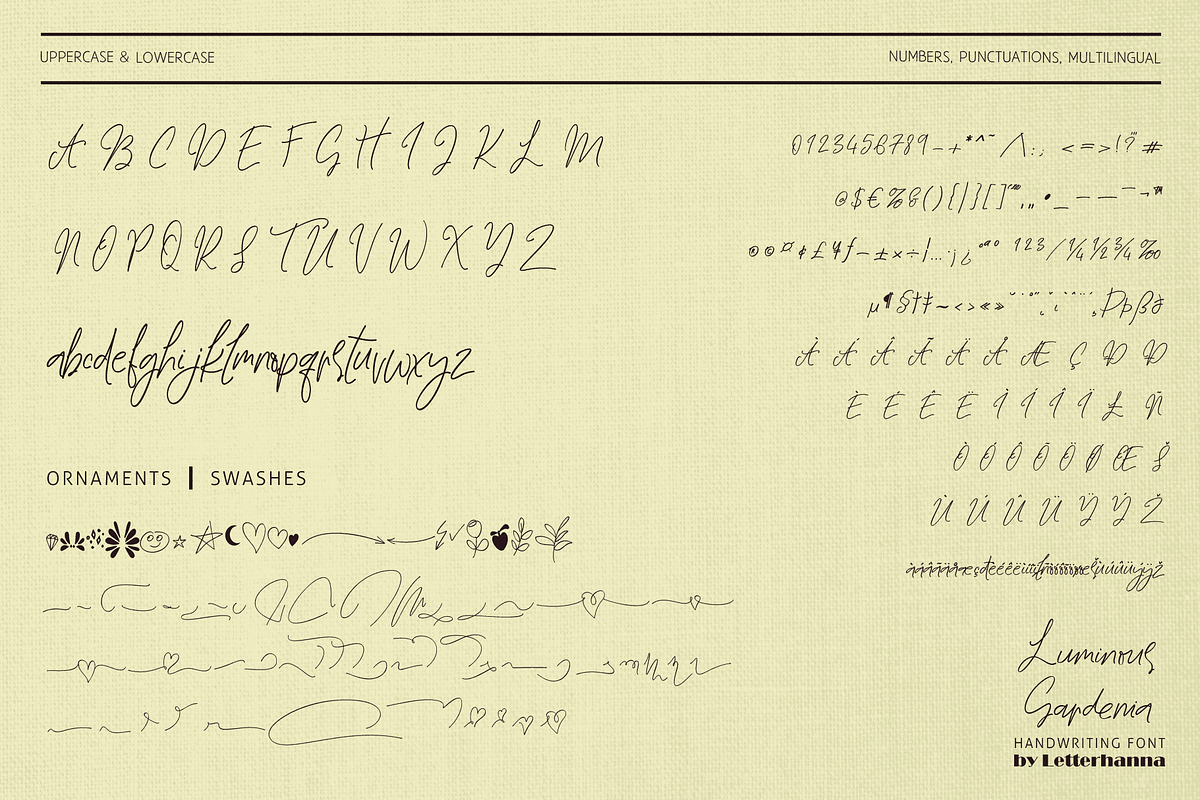 UPPERCASE & LOWERCASE
NUMBERS, PUNCTUATIONS, MULTILINGUAL
A B C D E F G H I J K L M
N O P Q R S T U V W X Y Z
abcdefghijklmnopqrstuvwxyz
ORNAMENTS | SWASHES
0123456789-+*^~/\:;<=>!?"#
@$€%&(){|}[]
©®¤¢£¥ƒ–±×÷¦…·¡¿°ªº ¹²³/¼½¾‰
µ¶§†‡~‹›«» Þþßð
À Á Â Ã Ä Å Æ Ç Ð Đ
È É Ê Ë Ì Í Î Ï Ł Ñ
Ò Ó Ô Õ Ö Ø Œ Š
Ù Ú Û Ü Ÿ Ý Ž
Luminous
Gardenia
HANDWRITING FONT
by Letterhanna